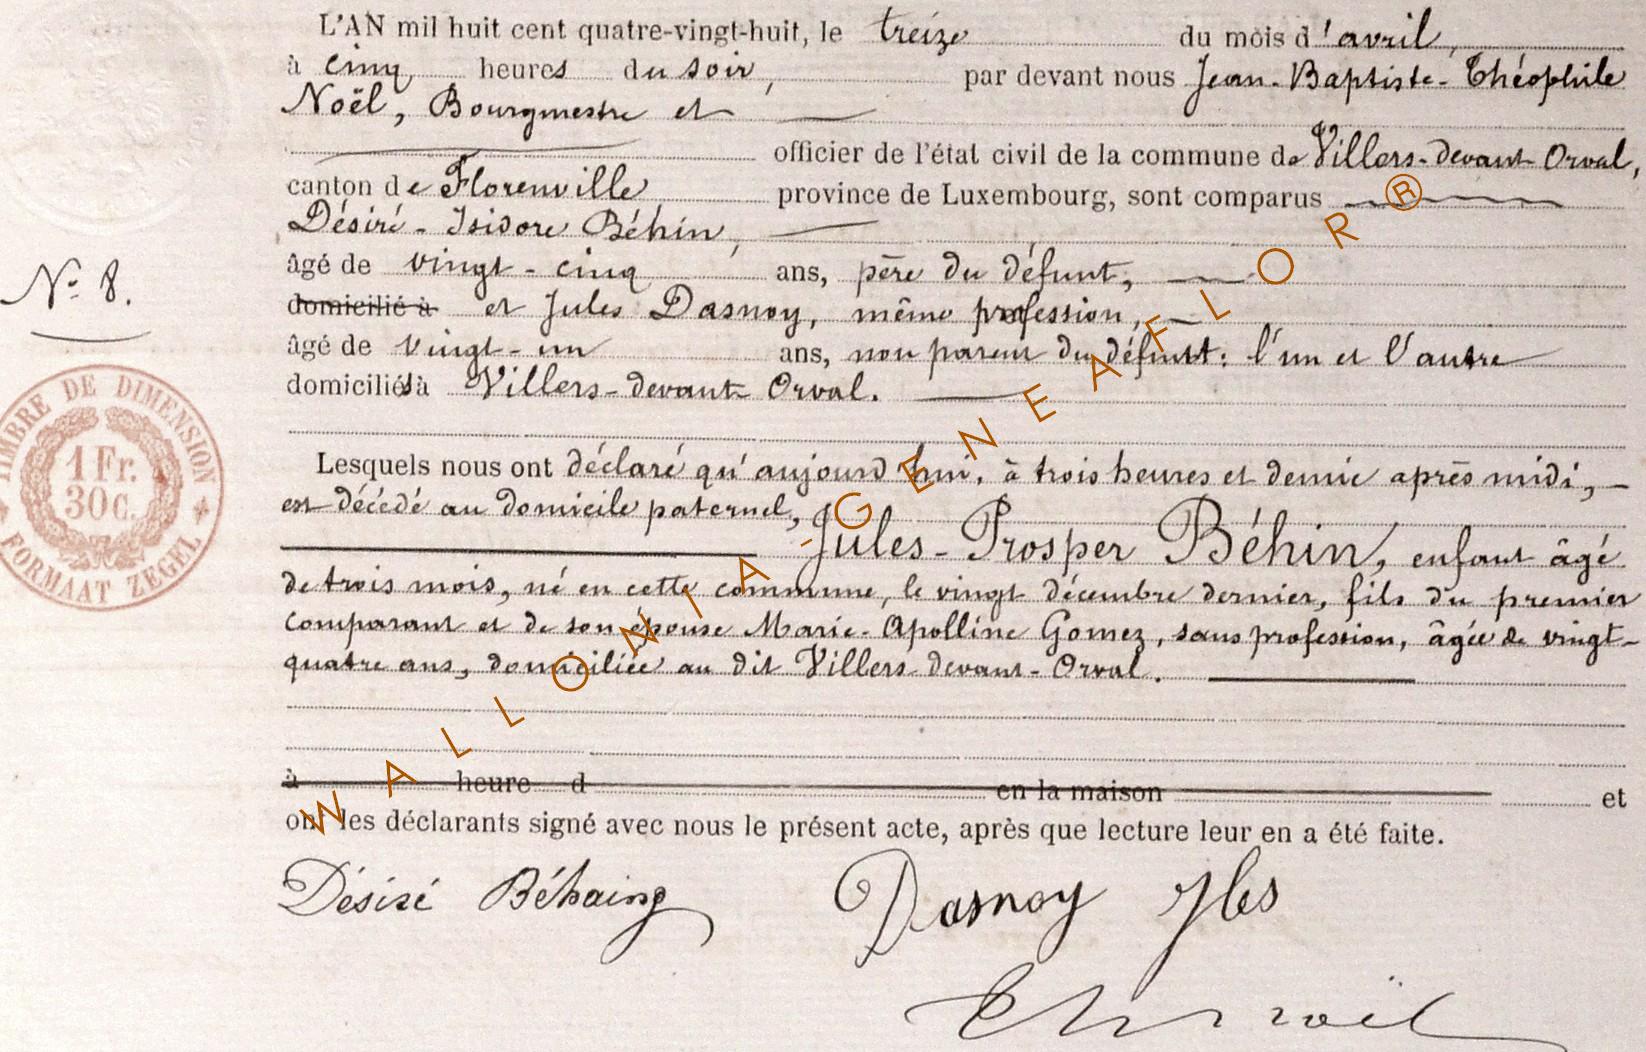 L'AN mil huit cent quatre-vingt-huit, le treize du mois d'avril,
à cinq heures du soir, par devant nous Jean-Baptiste-Théophile
Noël, Bourgmestre et
officier de l'état civil de la commune de Villers-devant-Orval,
canton de Florenville province de Luxembourg, sont comparus
Désiré-Isidore Béhin,
âgé de vingt-cinq ans, père du défunt,
N° 8.
domicilié à et Jules Dasnoy, même profession,
âgé de vingt-un ans, non parent du défunt: l'un et l'autre
domiciliés à Villers-devant Orval.
TIMBRE DE DIMENSION
1 Fr.
30 c.
FORMAAT ZEGEL
Lesquels nous ont déclaré qu'aujourd'hui, à trois heures et demie après midi,
est décédé au domicile paternel,
Jules-Prosper Béhin, enfant âgé
de trois mois, né en cette commune, le vingt décembre dernier, fils du premier
comparant et de son épouse Marie-Apolline Gomez, sans profession, âgée de vingt-
quatre ans, domiciliée au dit Villers-devant-Orval.
à heure d en la maison et
ont les déclarants signé avec nous le présent acte, après que lecture leur en a été faite.
Désiré Béhaing Dasnoy Jles
Th Noël
WALLONIA-GENEAFLOR®